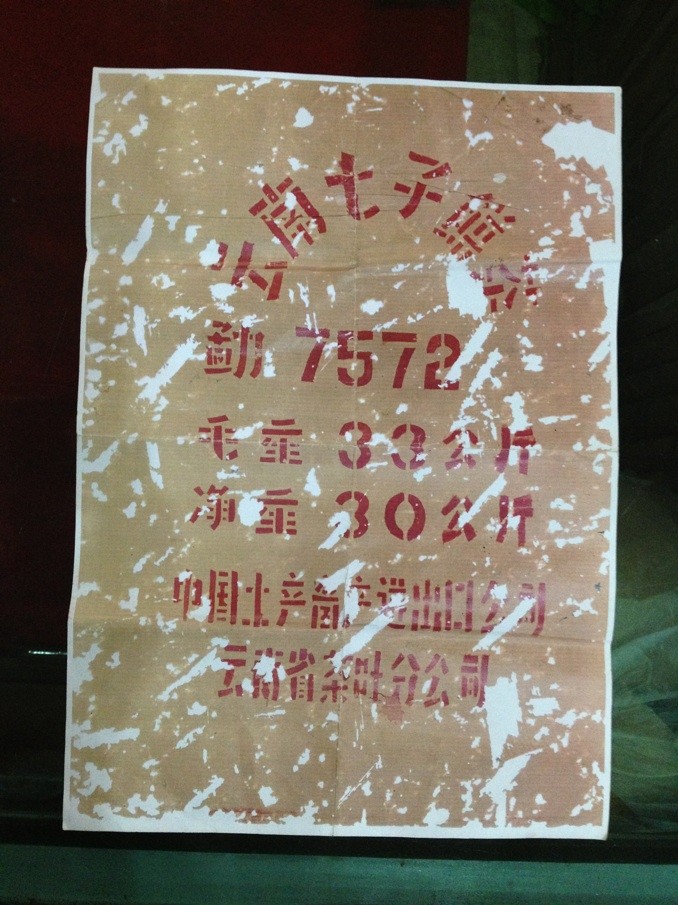 云南七子餅茶
勐 7572
毛重 33公斤
净重 30公斤
中国土产畜产进出口公司
云南省茶叶分公司